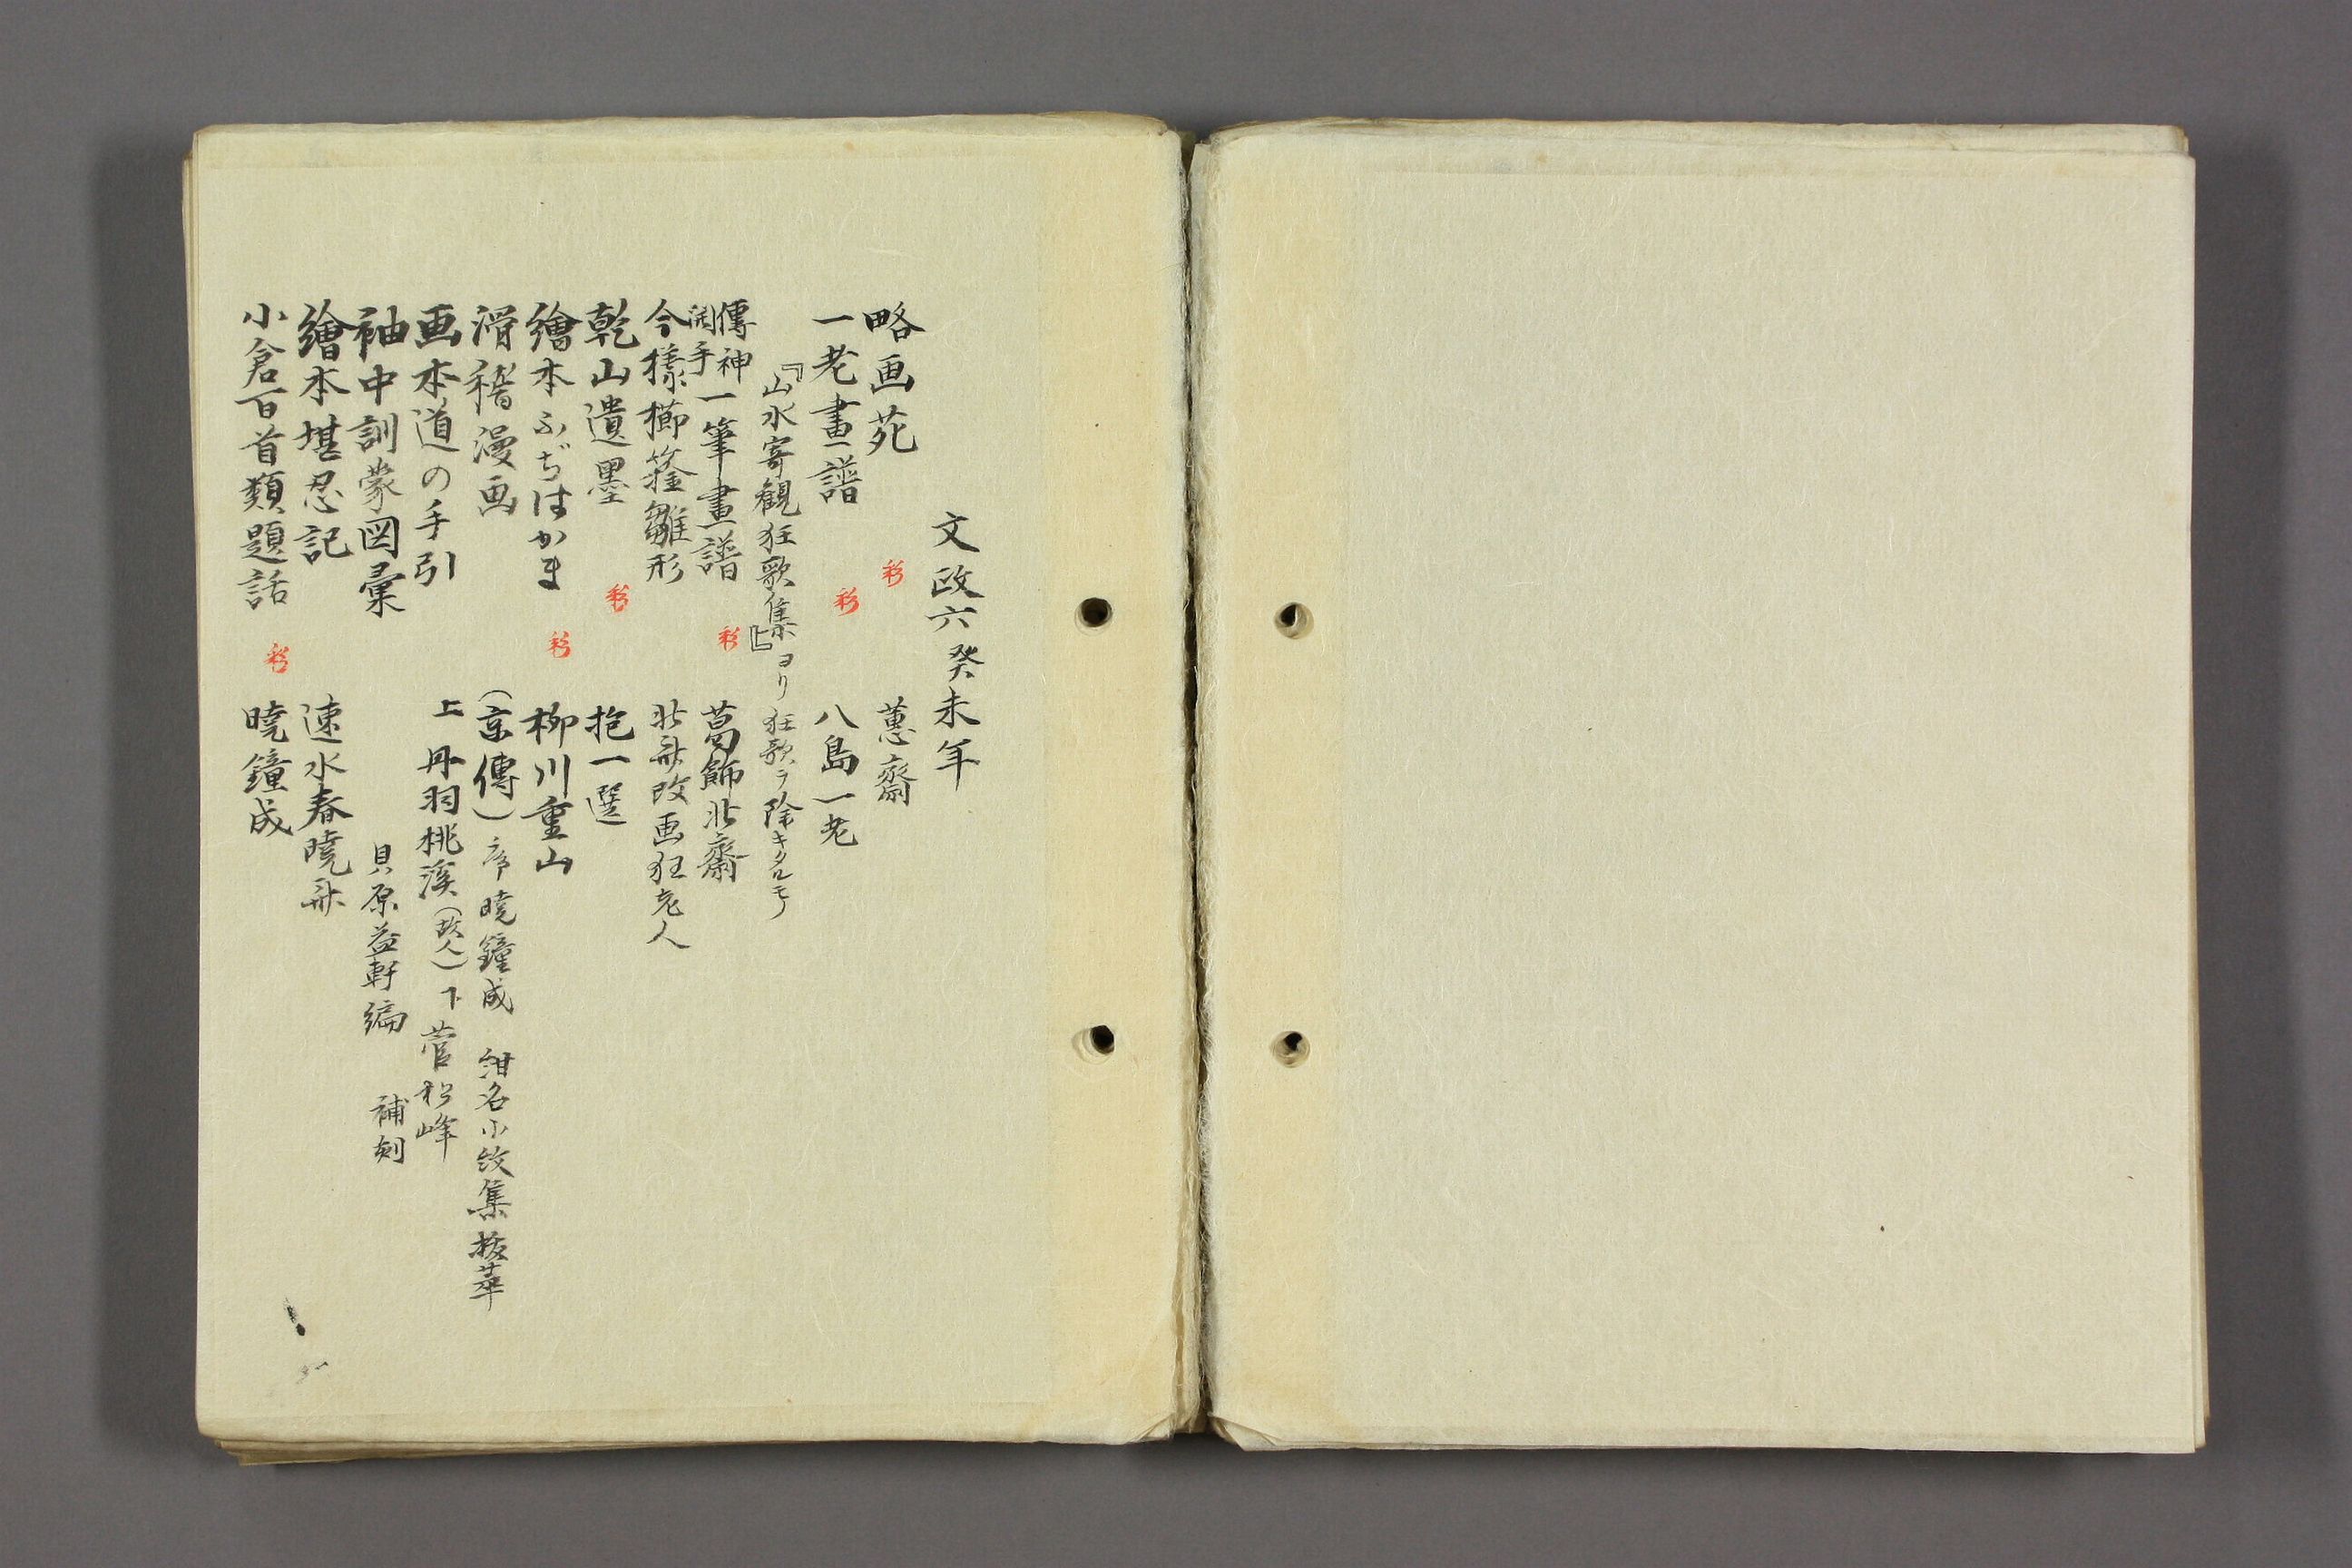 文政六癸未年
略画苑 彩 蕙齋
一老畫譜 彩 八島一老
『山水寄観狂歌集』ヨリ狂歌ヲ除キタルモノ
傳神開手一筆畫譜 彩 葛飾北齋
今様櫛𥮲雛形 北斎改画狂老人
乾山遺墨 彩 抱一選
繪本ふぢはかま 彩 柳川重山
滑稽漫画 (京傳)序暁鐘成 紺名小紋集抜萃
画本道の手引 上丹羽桃溪(故人)下菅松峰
袖中訓蒙図彙 貝原益軒編 補刻
繪本堪忍記 速水春暁斎
小倉百首類題話 彩 暁鐘成